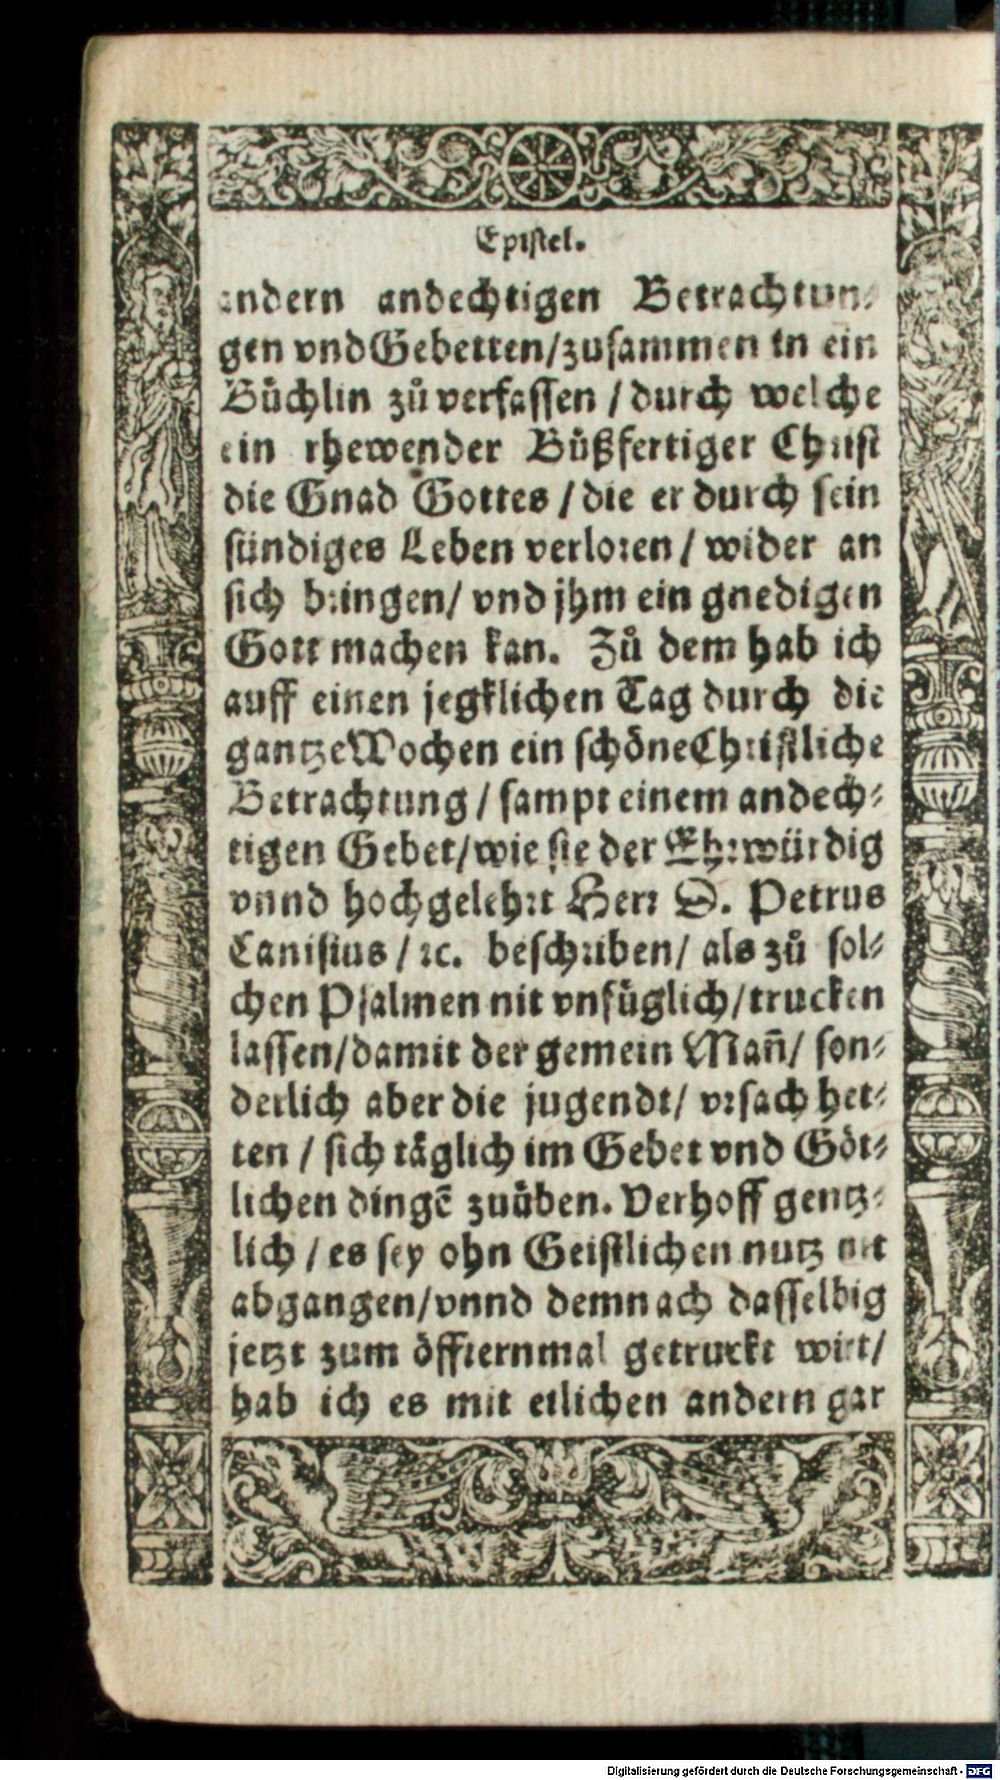 Epistel.
andern andechtigen Betrachtun⸗
gen vnd Gebetten/zusammen in ein
Büchlin zů verfassen / durch welche
ein rhewender Bůßfertiger Christ
die Gnad Gottes / die er durch sein
sündiges Leben verloren / wider an
sich bringen/ vnd jhm ein gnedigen
Gott machen kan. Zů dem hab ich
auff einen jegklichen Tag durch die
gantze Wochen ein schöne Christliche
Betrachtung / sampt einem andech⸗
tigen Gebet/wie sie der Ehrwürdig
vnnd hochgelehrt Herr D. Petrus
Canisius / ꝛc. beschriben/ als zů sol⸗
chen Psalmen nit vnfüglich/trucken
lassen/damit der gemein Mañ/ son⸗
derlich aber die jugendt/ vrsach het⸗
ten / sich täglich im Gebet vnd Göt⸗
lichen dingẽ zuüben. Verhoff gentz⸗
lich / es sey ohn Geistlichen nutz nit
abgangen/vnnd demnach dasselbig
jetzt zum öffternmal getruckt wirt/
hab ich es mit etlichen andern gar
Digitalisierung gefördert durch die Deutsche Forschungsgemeinschaft - DFG